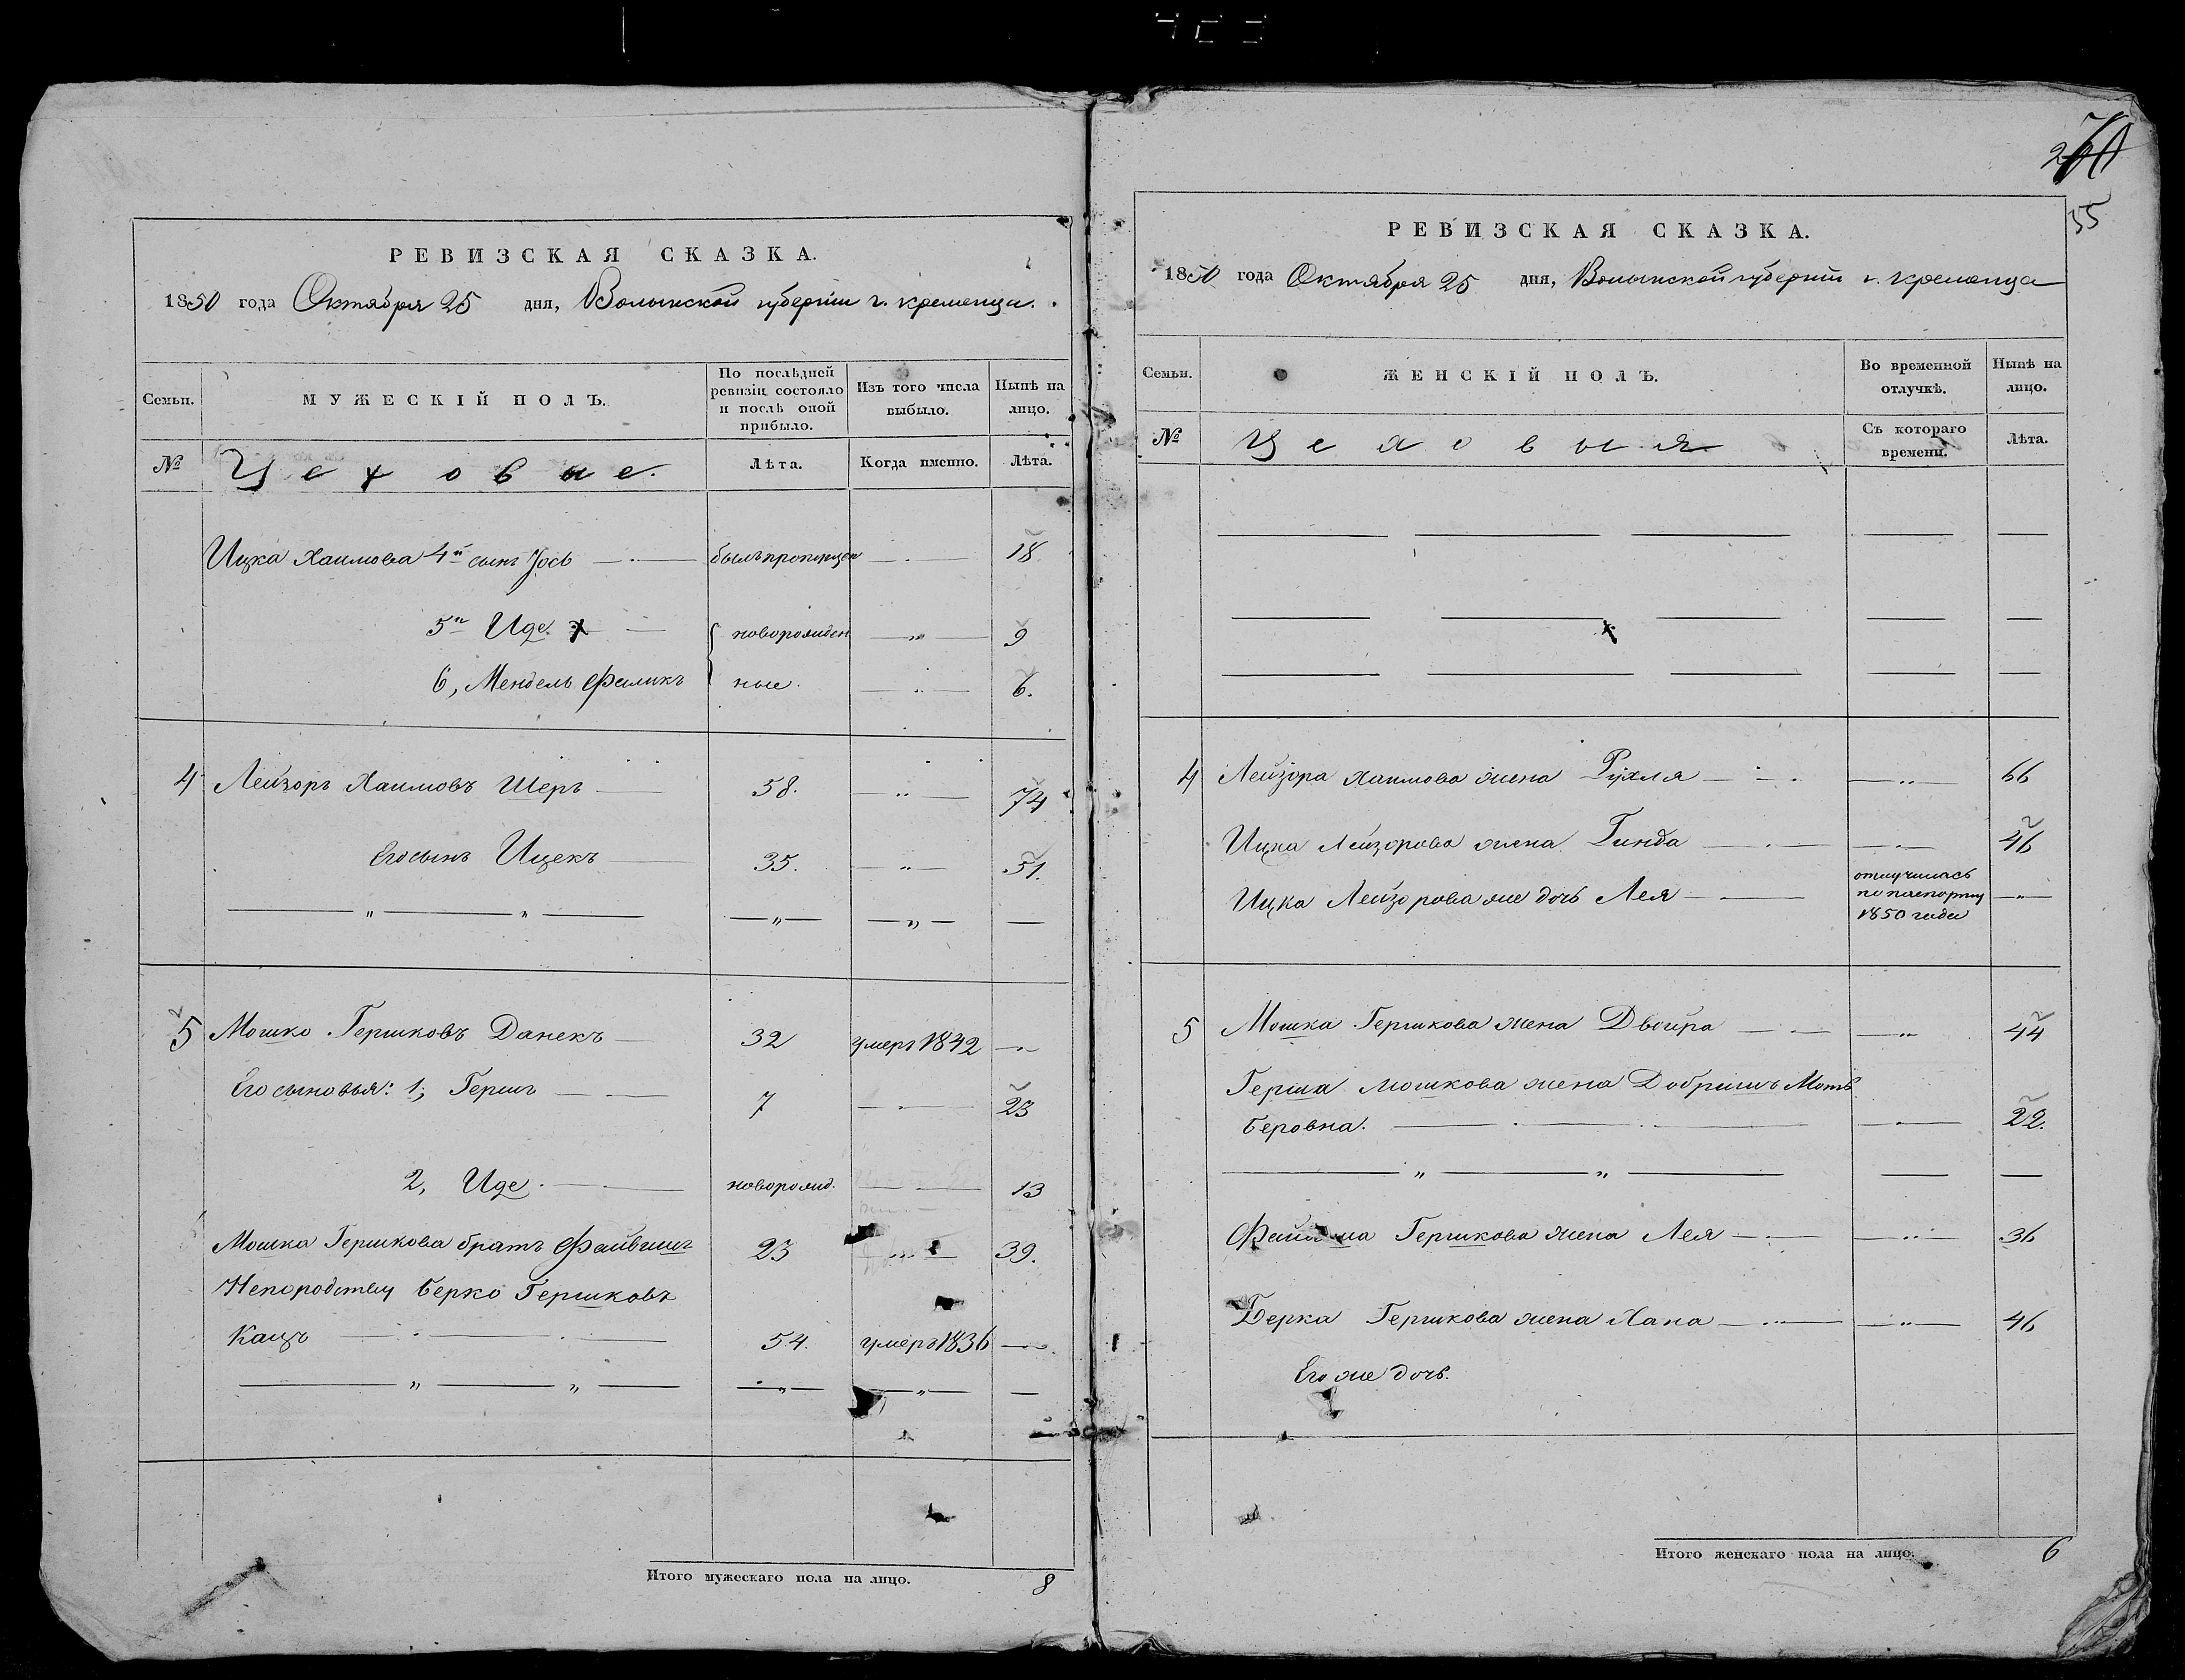 РЕВИЗСКАЯ СКАЗКА.
1850 года Октября 25 дня, Волынской губернии г. Кременца.
Семьи.
МУЖЕСКІЙ ПОЛЪ.
По послѣдней ревизіи состояло и послѣ оной прибыло.
Изъ того числа выбыло.
Нынѣ на лицо.
№
Цеховые.
Лѣта.
Когда именно.
Лѣта.
Ицка Хаимова 4й сынъ Іось былъ пропущен 18
5й Иде 9
новорожден
6, Мендель Фаликъ ные 6.
4 Лейзоръ Хаимовъ Шеръ 58. 74
Его сынъ Ицекъ 35. 51.
5 Мошко Гершковъ Данекъ 32 умеръ 1842
Его сыновья: 1, Гершъ 7 23
2, Иде новорожд. 13
Мошка Гершкова братъ Файвишъ 23 39.
Непородству Берко Гершковъ
Кацъ 54. умеръ 1836
Итого мужескаго пола на лицо. 8
55
РЕВИЗСКАЯ СКАЗКА.
1850 года Октября 25 дня, Волынской губерніи г. Кременца
Семьи.
ЖЕНСКІЙ ПОЛЪ.
Во временной отлучкѣ.
Нынѣ на лицо.
№
Цеховыя
Съ котораго времени.
Лѣта.
4 Лейзора Хаимова жена Рухля 66
Ицка Лейзорова жена Гинда 46
Ицка Лейзорова же дочь Лея
отлучилась
по паспорту
1850 года
5 Мошка Гершкова жена Двойра 44
Герша Мошкова жена Добришъ Моть
Беровна. 22.
Гершкова жена Лея 36
Берка Гершкова жена Хана 46
Его же дочь.
Итого женскаго пола на лицо. 6